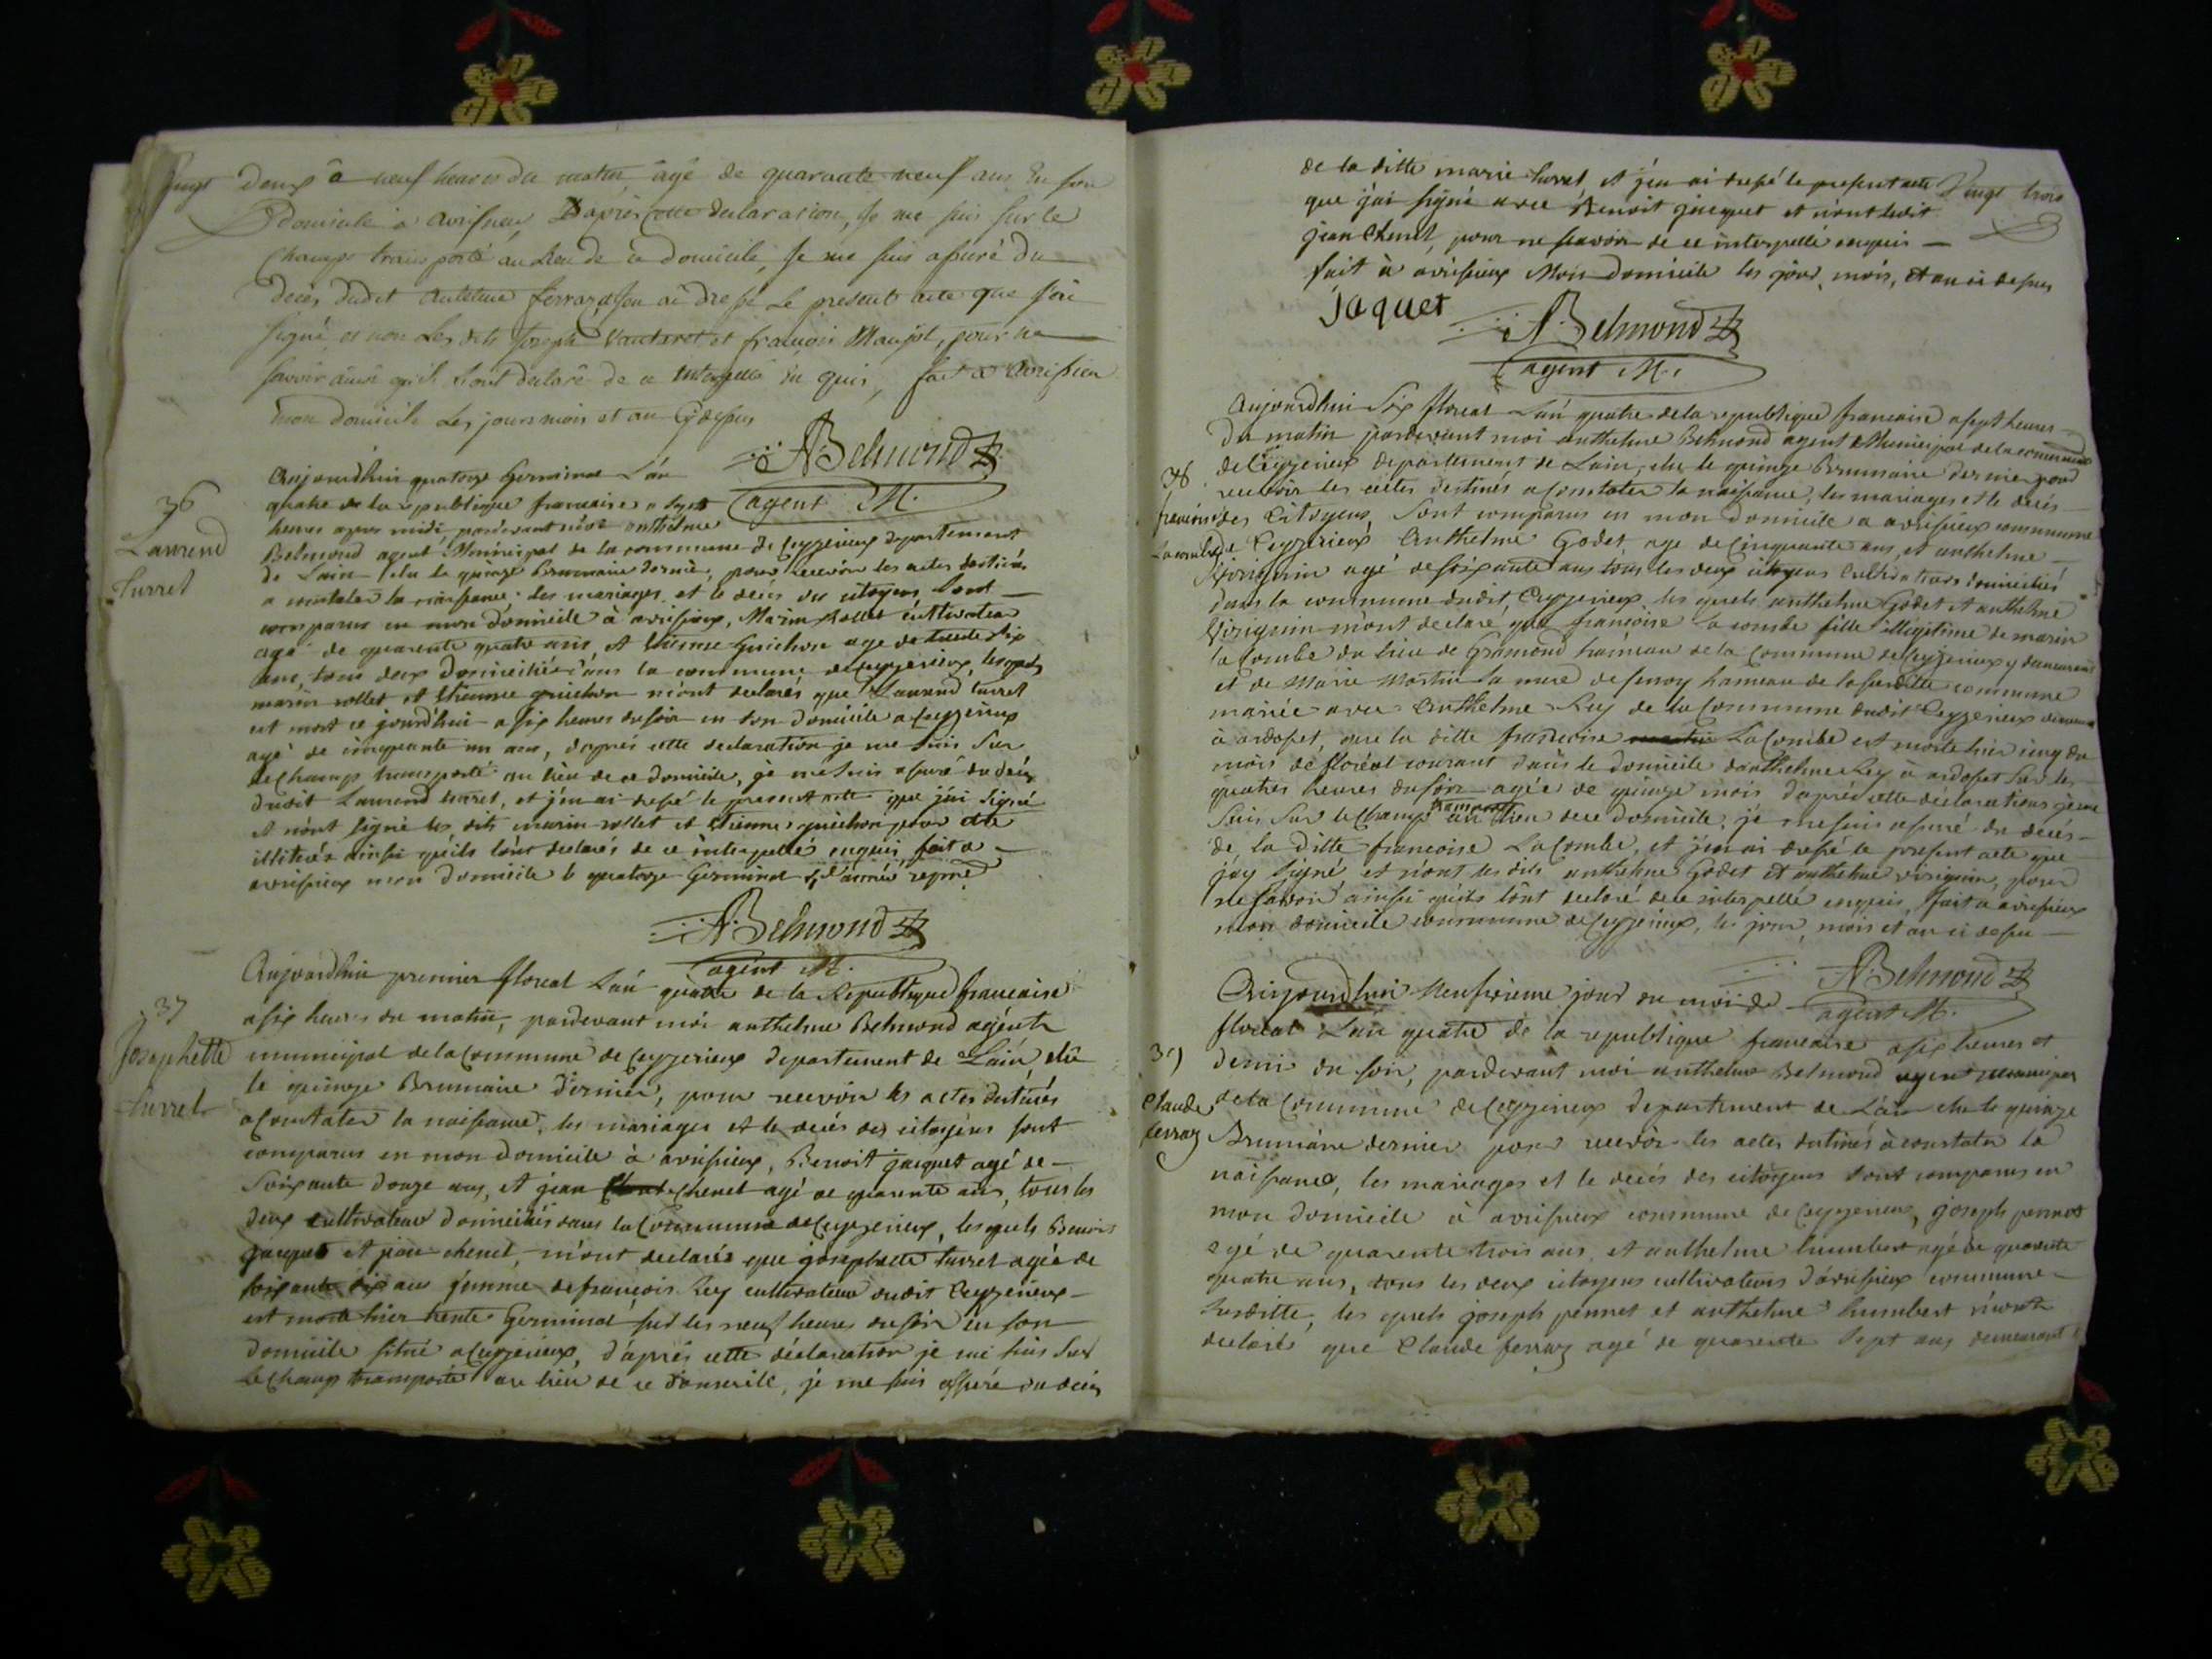 Vingt Deux à neuf heures du matin, âgé de quarante neuf ans En son
domicile à avrisieu, D'après cette declaration, Je me suis sur le
Champs transporté au Lieu de ce domicile, Je me suis assuré du
decès dudit Antelme ferraz, J'en ai dressé Le present acte que J'ai
signé et non Les dits Joseph et françois Maujot, pour ne
savoir ainsi qu'ils L'ont declaré de ce Interpellé En quis, fait à avrissieu
mon domicile Les jour mois et an Cy dessus
ABelmond
agent M.
36
Laurend
Turret
Aujourdhui quatorze Germinal L'an
quatre de la republique francaise a sept
heures apres midi, pardevant moi anthelme
Belmond agent Municipal de la commune de Ceyzerieux departement
de L'ain elu le quinze Brumaire dernier, pour recevoir les actes destinés
a constater la naissance les mariages et le décés des citoyens, sont
comparus en mon domicile à avrissieux, Marin Rollet cultivateur
agé de quarente quatre ans, et Etienne Guichon age de trente six
ans, tous deux domiciliés dans la commune de Ceyzerieux, lesquels
marin rollet et Etienne guichon m'ont declarés que Laurend turret
est mort ce jourd'hui a six heures du soir en son domicile a Ceyzerieux
agé de cinquante un ans, d'aprés cette declaration je me suis sur
le Champs transporté au lieu de ce domicile, je me suis assuré du décés
dudit Laurend turret, et j'en ai dressé le present acte que j'ai signé
et n'ont signé les dits marin rollet et Etienne guichon pour etre
illiterés ainsi qu'ils l'ont declarés de ce interpellés enquis, fait a
avrissieux mon domicile le quatorze Germinal
ABelmond
agent M.
37
Josephette
Turret
Aujourdhui premier floreal L'an quatre de la Republique francaise
a six heures du matin, pardevant moi anthelme Belmond agent
municipal de la Commune de Ceyzerieux departement de L'ain, élu
le quinze Brumaire dernier, pour recevoir les actes destinés
a Constater la naissance, les mariages et le decés des citoyens sont
comparus en mon domicile à avrissieux, Benoit jacquet agé de
Soixante douze ans, et jean chenet agé de quarente ans, tous les
deux cultivateur domiciliés dans la Commune de Ceyzerieux, lesquels Benoit
jacquet et jean chenet, m'ont declarés que josephette turret agée de
soixante dix ans femme de françois Rey cultivateur dudit Ceyzerieux
est morte hier trente Germinal sur les neuf heures du soir en son
domicile situé a Ceyzerieux, d'aprés cette déclaration je me suis sur
le Champs transporté au lieu de ce domicile, je me suis assuré du decés
de la ditte marie turret, et j'en ai dressé le present acte Vingt trois
que j'ai signé avec Benoit jacquet et non ledit
jean Chenet, pour ne scavoir de ce interpellé enquis
fait à avrissieux Mon domicile les jour, mois, et an ci dessus
Jaquet
ABelmond
agent M.
Aujourdhui Six floreal L'an quatre de la republique francaise a sept heures
du matin pardevant moi anthelme Belmond agent Municipal de la commune
38
francoise
Lacombe
de Ceyzerieux departement de L'ain, elu le quinze Brumaire dernier pour
recevoir les actes destinés a Constater la naissance, les mariages et le décés
des Citoyens, sont comparus en mon domicile a avrissieux commune
de Ceyzerieux Anthelme Godet, age de Cinquante ans, et anthelme
Viriguin agé de soixante ans tous les deux citoyens Cultivateurs domiciliés
dans la commune dudit Ceyzerieux les quels anthelme Godet et anthelme
Viriguin m'ont declaré que francoise la combe fille illegitime de marin
la Combe du lieu de Gramond hameau de la Commune de Ceyzerieux y demeurant
et de Marie Martin sa mere de hameau de la susditte commune
mariée avec Anthelme Rey de la Commune dudit Ceyzerieux demeurant
à ardosset, que la ditte francoise La Combe est morte hier cinq du
mois de floréal courant dans le domicile d'anthelme Rey à ardosset sur les
quatres heures du soir agée de quinze mois d'aprés cette déclaration je me
suis sur le Champs transporté au lieu de ce domicile, je me suis assuré du décés
de la ditte francoise La Combe, et j'en ai dressé le present acte que
j'ay signé et n'ont les dits anthelme Godet et anthelme viriguin, pour
ne savoir ainsi qu'ils l'ont declaré de ce interpellé enquis, fait a avrissieux
mon domicile commune de Ceyzerieux, les jour, mois et an ci dessu
ABelmond
agent M.
39
Claude
ferraz
Aujourdhui Neufvieme jour du mois de
floreal L'an quatre de la republique francaise a six heures et
demi du soir, pardevant moi anthelme Belmond agent municipal
de la Commune de Ceyzerieux departement de L'ain elu le quinze
Brumaire dernier pour recevoir les actes destinés à constater la
naissance, les mariages et le decés des citoyens sont comparus en
mon domicile à avrissieux commune de Ceyzerieux, joseph pennet
agé de quarente trois ans, et anthelme humbert agé de quarente
quatre ans, tous les deux citoyens cultivateurs d'avrissieux commune
susditte, les quels joseph pennet et anthelme humbert m'ont
declarés que Claude ferraz agé de quarente sept ans demeurant